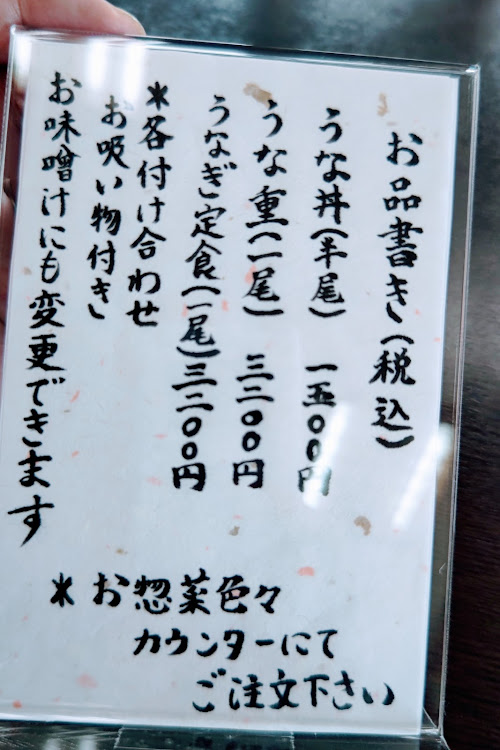 お品書き(税込)
うな丼(半尾) 一五〇〇円
うな重(一尾) 三二〇〇円
うなぎ定食(一尾)三二〇〇円
*各付け合わせ
お吸い物付き
お味噌汁にも変更できます
*お惣菜色々
カウンターにて
ご注文下さい